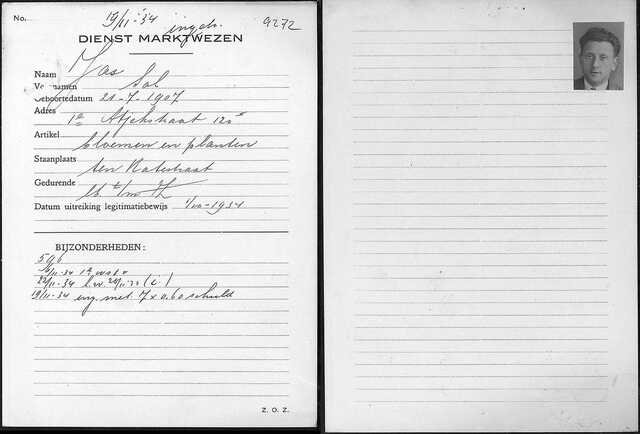 No. 19/11-'34 ingetr. 9272
DIENST MARKTWEZEN
Naam Jas
Voornamen Sal
Geboortedatum 21-7-1907
Adres
1e Atjehstraat 120
Artikel
bloemen en planten
Staanplaats
ten Katestraat
Gedurende
t/m
Datum uitreiking legitimatiebewijs 1934
BIJZONDERHEDEN:
596
11-34 1e
22/11-34 b.v. (i)
19/11-34 eng. met 7 x 0.60 schuld
Z. O. Z.